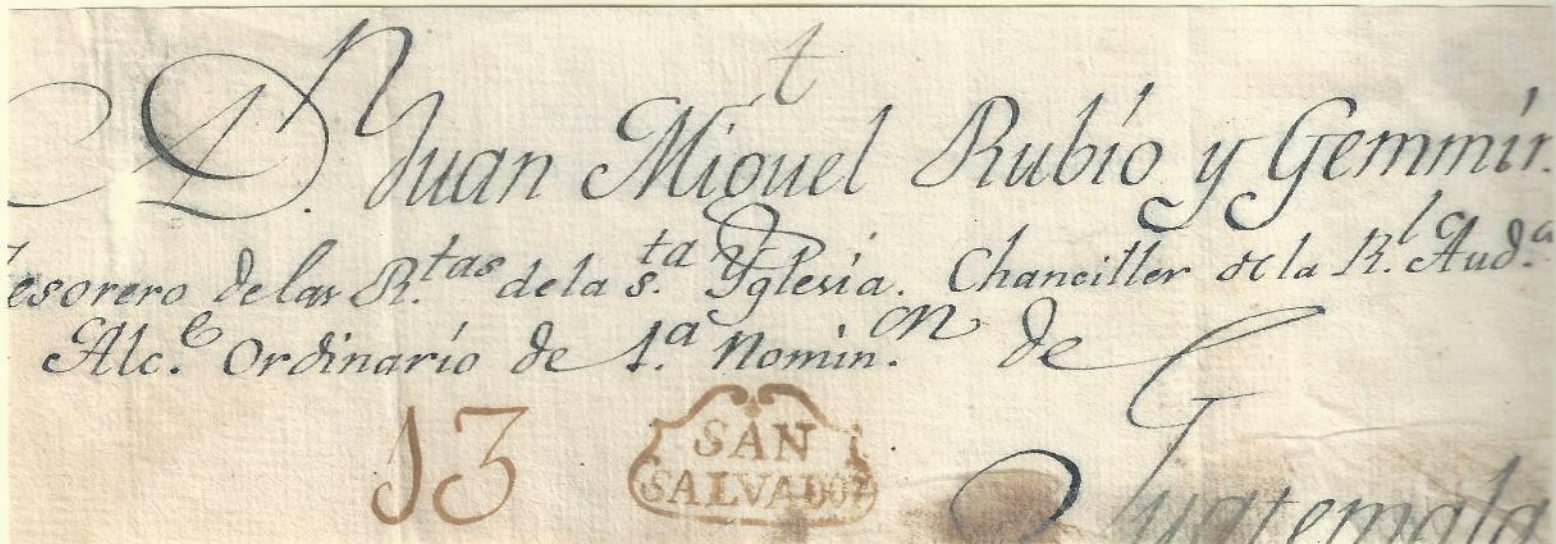 t
A D.n Juan Miguel Rubio y Gemmir.
Tesorero de las R.tas de la s.ta Yglesia. Chanciller de la R.l Aud.a
Alc.e Ordinario de 1.a Nomin.on de
13 SAN
SALVADOR
Guatemala